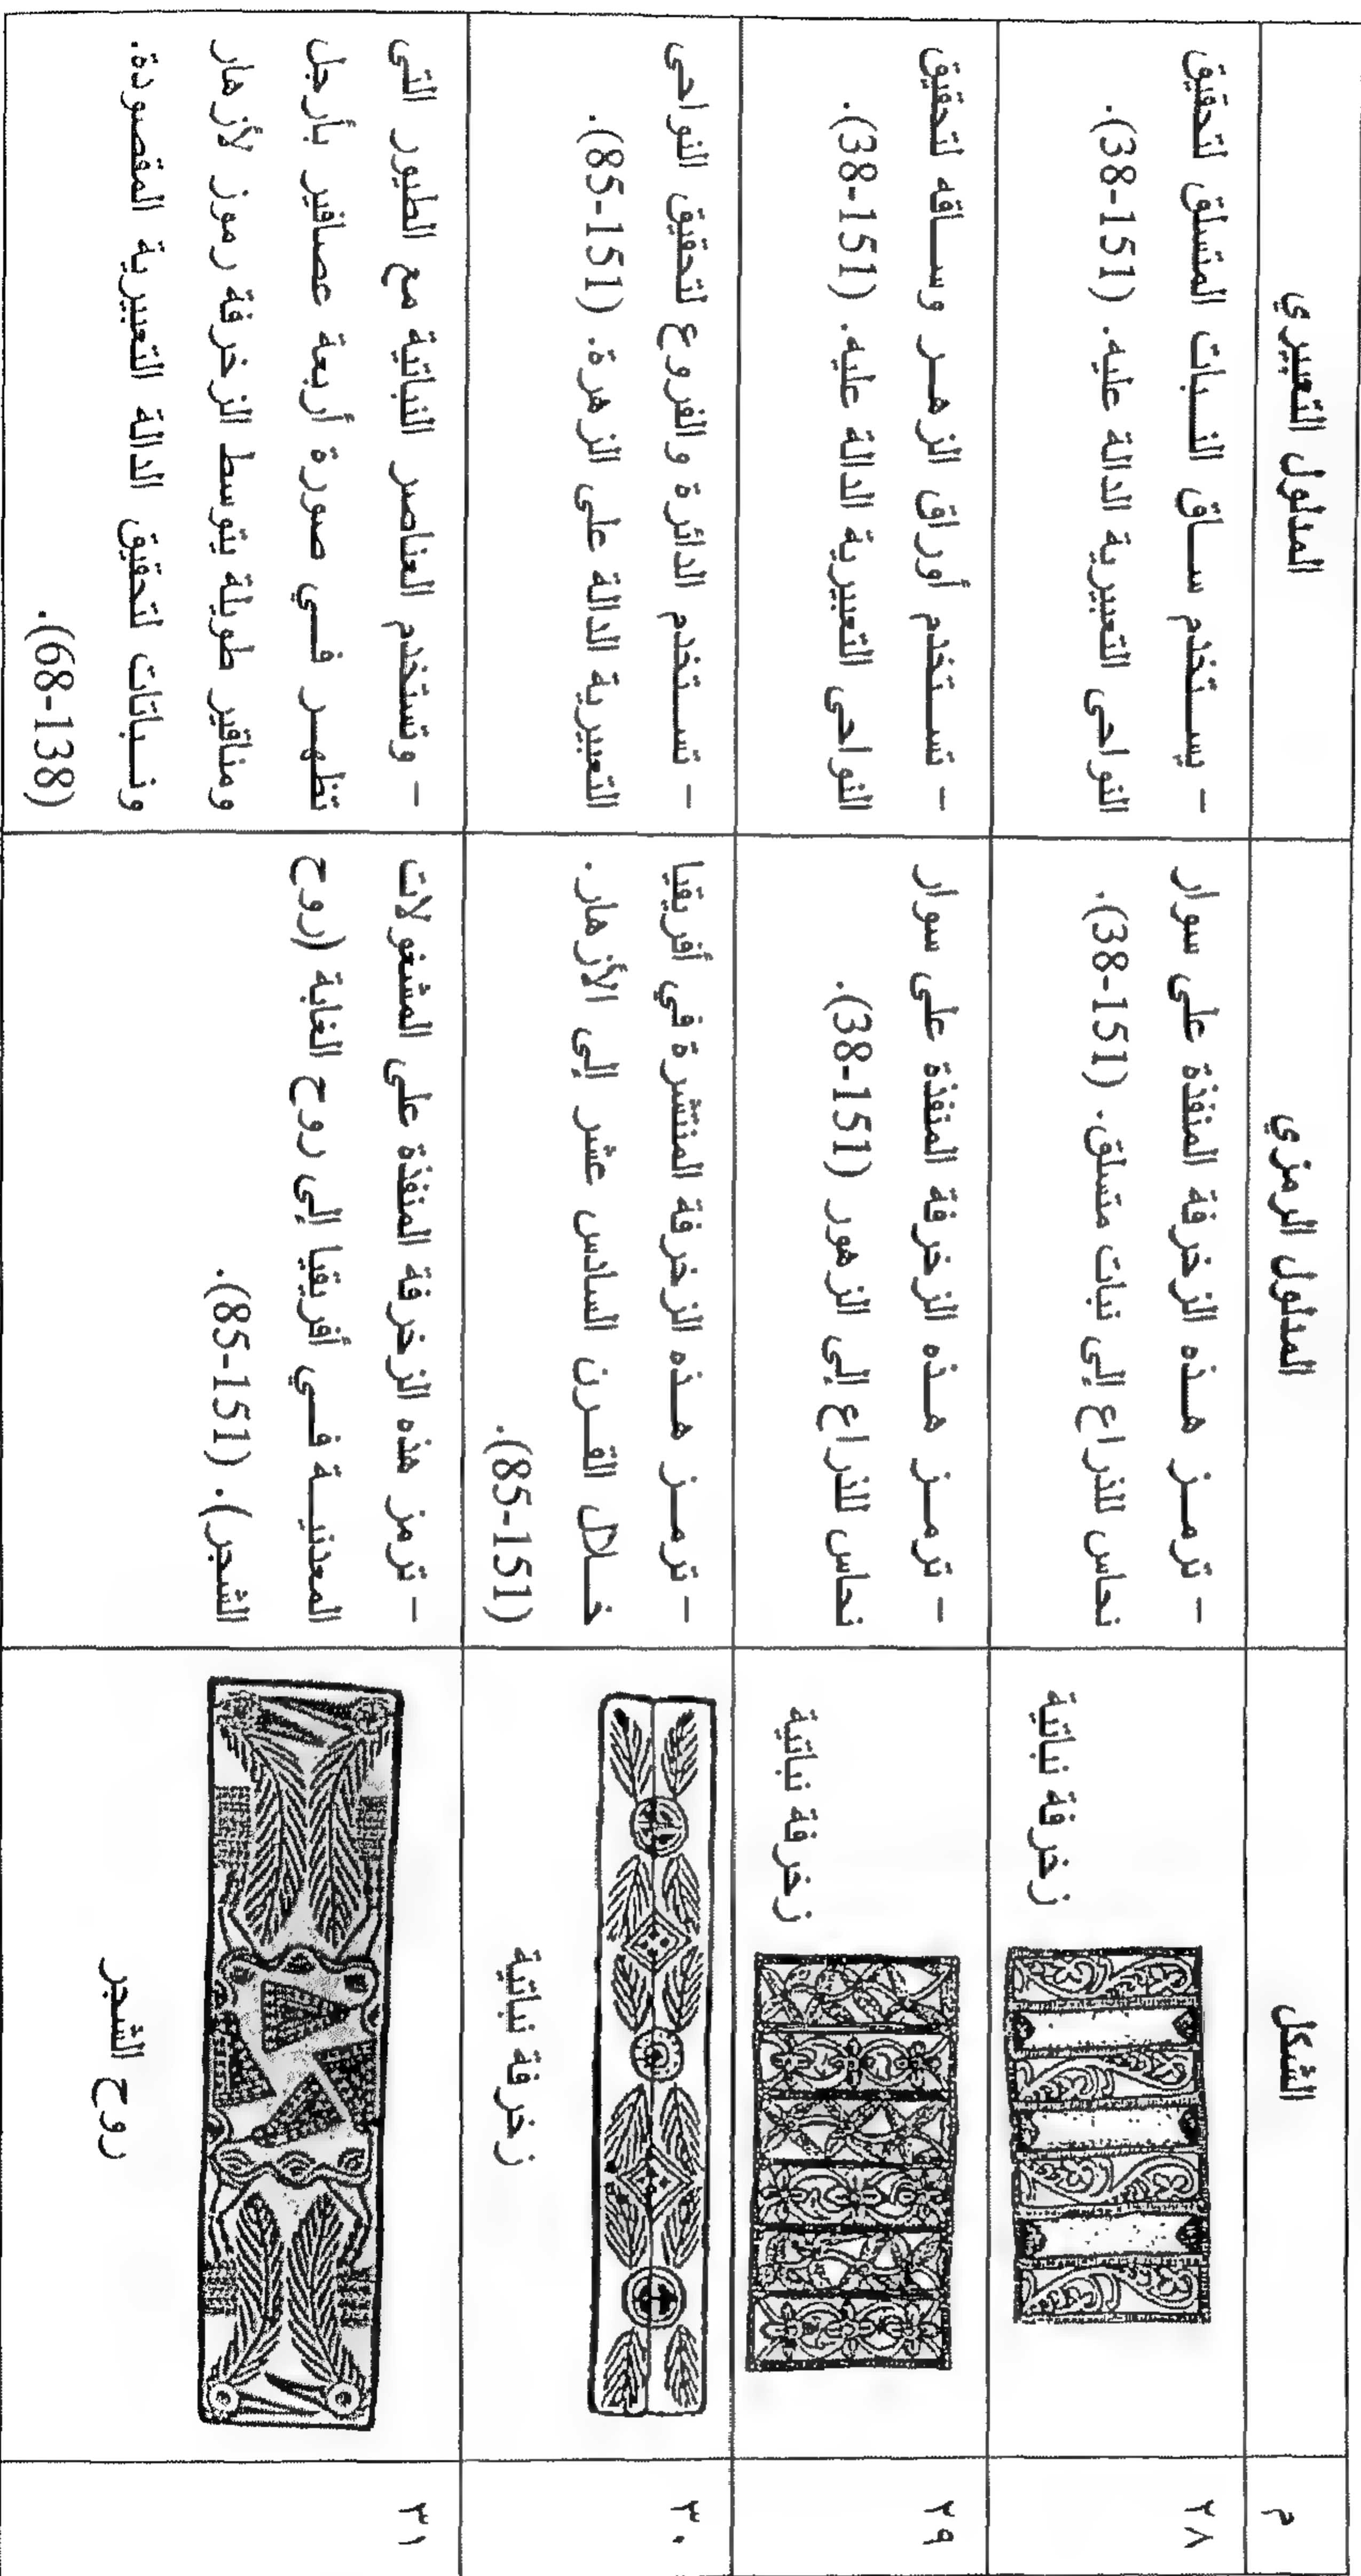 م
الشكل
المدلول الرمزي
المدلول التعبيري
٢٨
زخرفة نباتية
- ترمز هذه الزخرفة المنفذة على سوار
نحاس للذراع إلى نبات متسلق. (38-151).
- يستخدم ساق النبات المتسلق لتحقيق
النواحى التعبيرية الدالة عليه. (38-151).
٢٩
زخرفة نباتية
- ترمز هذه الزخرفة المنفذة على سوار
نحاس للذراع إلى الزهور (38-151).
- تستخدم أوراق الزهر وساقه لتحقيق
النواحى التعبيرية الدالة عليه. (38-151).
٣٠
زخرفة نباتية
- ترمز هذه الزخرفة المنتشرة في أفريقيا
خلال القرن السادس عشر إلى الأزهار.
(85-151).
- تستخدم الدائرة والفروع لتحقيق النواحى
التعبيرية الدالة على الزهرة. (85-151).
٣١
روح الشجر
- ترمز هذه الزخرفة المنفذة على المشغولات
المعدنية في أفريقيا إلى روح الغابة (روح
الشجر). (85-151).
- وتستخدم العناصر النباتية مع الطيور التى
تظهر في صورة أربعة عصافير بأرجل
ومناقير طويلة يتوسط الزخرفة رموز لأزهار
ونباتات لتحقيق الدالة التعبيرية المقصودة.
(68-138).